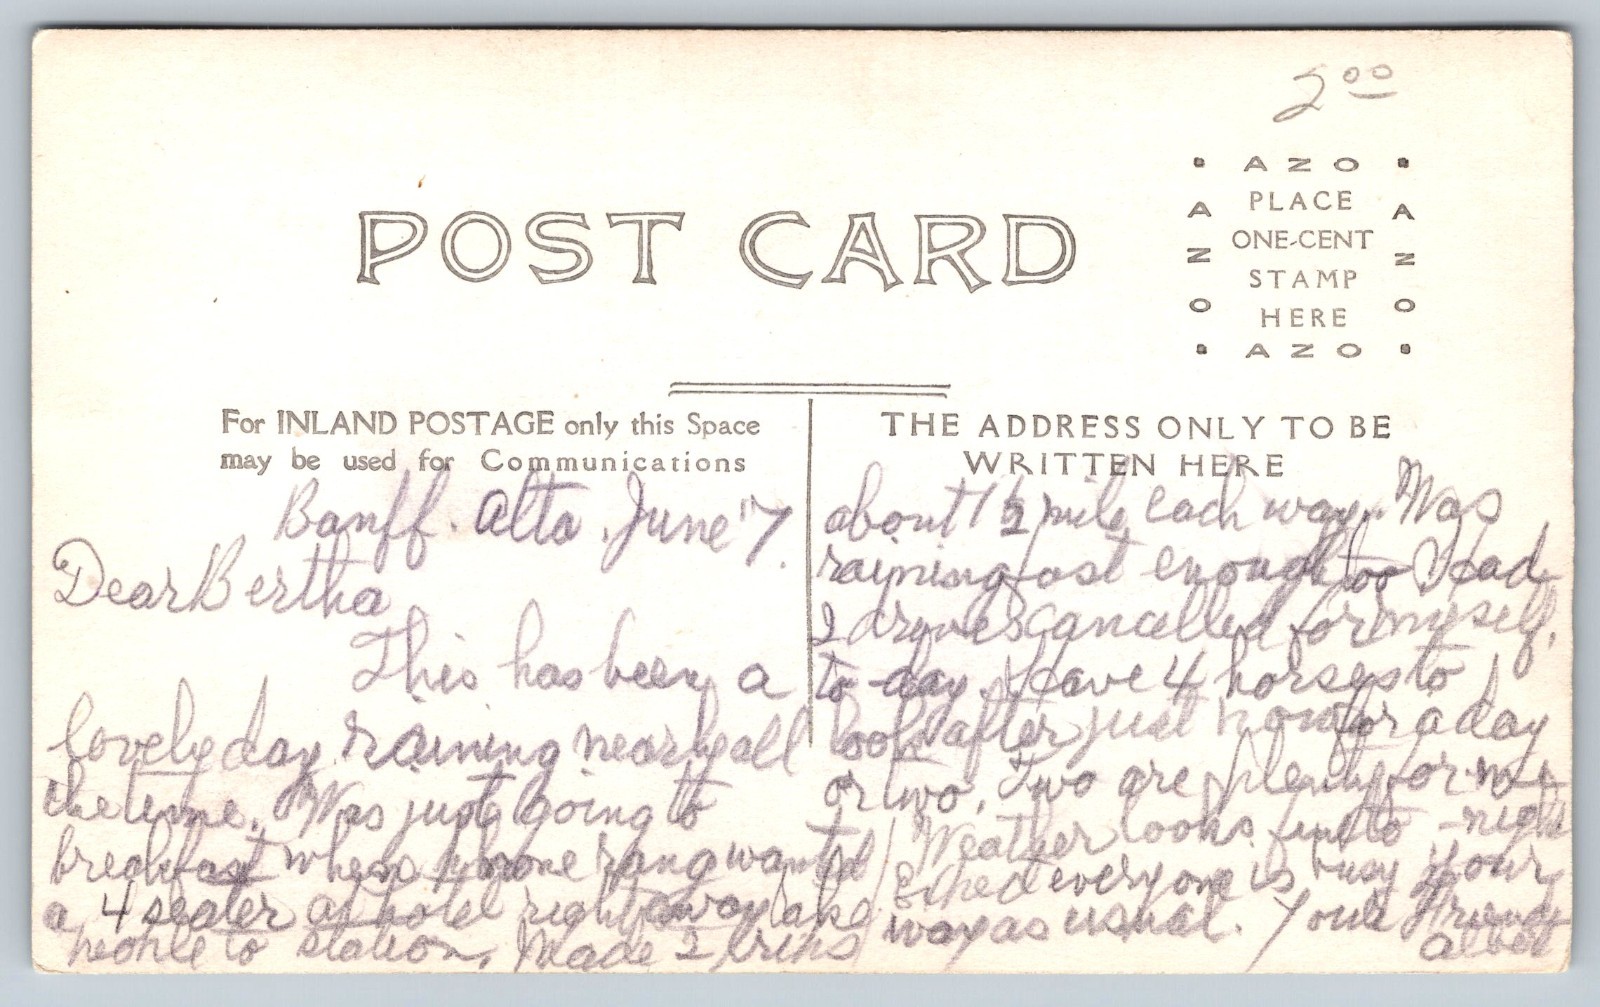 2 00
AZO
PLACE
ONE-CENT
STAMP
HERE
AZO
AZO
AZO
POST CARD
For INLAND POSTAGE only this Space
may be used for Communications
THE ADDRESS ONLY TO BE
WRITTEN HERE
Banff. Alta. June 7.
Dear Bertha
This has been a
lovely day raining nearly all
the time. Was just going to
breakfast when phone rang wanted
a 4 seater at hotel right away take
people to station. Made 2 trips
about 1 1/2 mile each way. Was
raining fast enough too Had
2 drives cancelled for myself.
to-day. Have 4 horses to
look after just now for a day
or two. Two are plenty for me
Weather looks fine to-night
everyone is busy your
way as usual. Your Friend
Albert